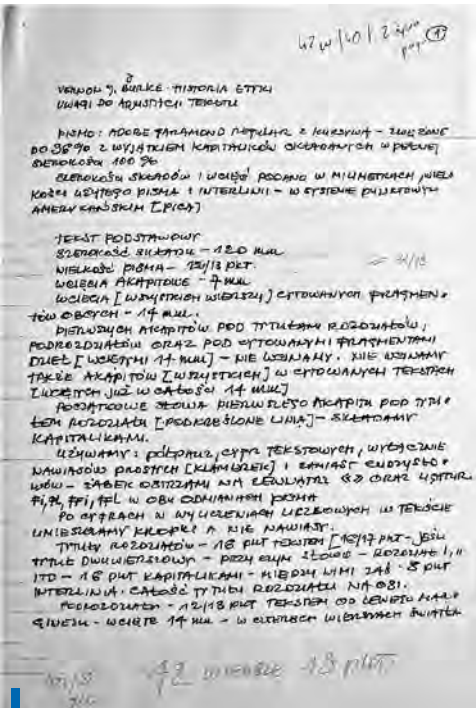 VERNON J. BURKE - HISTORIA ETYKI
UWAGI DO ADIUSTACJI TEKSTU
PISMO: ADOBE GARAMOND REGULAR Z KURSYWĄ - ZWĘŻONE
DO 96% Z WYJĄTKIEM KAPITALIKÓW SKŁADANYCH W PEŁNEJ
SZEROKOŚCI 100 %
SZEROKOŚĆ SKŁADÓW I WCIĘĆ PODANO W MILIMETRACH, WIEL
KOŚCI UŻYTEGO PISMA I INTERLINII - W SYSTEMIE PUNKTOWYM
AMERYKAŃSKIM [PICA]
TEKST PODSTAWOWY
SZEROKOŚĆ SKŁADU - 120 mm
WIELKOŚĆ PISMA - 12/13 PKT.
WCIĘCIA AKAPITOWE - 7 mm
WCIĘCIA [WSZYSTKICH WIERSZY] CYTOWANYCH FRAGMEN-
TÓW OBCYCH - 14 mm.
PIERWSZYCH AKAPITÓW POD TYTUŁAMI ROZDZIAŁÓW,
PODROZDZIAŁÓW ORAZ POD CYTOWANYMI FRAGMENTAMI
[WCIĘTYMI 14 mm] - NIE WCINAMY. NIE WCINAMY
TAKŻE AKAPITÓW [WSZYSTKICH] W CYTOWANYCH TEKSTACH
[WCIĘTYCH JUŻ W CAŁOŚCI 14 mm]
POCZĄTKOWE SŁOWA PIERWSZEGO AKAPITU POD TYTU-
ŁEM ROZDZIAŁU [PODKREŚLONE LINIĄ] - SKŁADAMY
KAPITALIKAMI.
UŻYWAMY: PÓŁPAUZ, CYFR TEKSTOWYCH, WYŁĄCZNIE
NAWIASÓW PROSTYCH [KLAMEREK] I ZAMIAST CUDZYSŁO-
WÓW - ŻABEK OSTRZAMI NA ZEWNĄTRZ «» ORAZ LIGATUR
fi, fl, ffi, ffl W OBU ODMIANACH PISMA
PO CYFRACH W WYLICZENIACH LICZBOWYCH W TEKŚCIE
UMIESZCZAMY KROPKĘ A NIE NAWIAS.
TYTUŁY ROZDZIAŁÓW - 16 PKT TEKSTEM [16/17 PKT - JEŚLI
TYTUŁ DWUWIERSZOWY - PRZY CZYM SŁOWO - ROZDZIAŁ I, II
ITD - 16 PKT KAPITALIKAMI - MIĘDZY NIMI ZAŚ - 8 PKT
INTERLINIA. CAŁOŚĆ TYTUŁU ROZDZIAŁU NA OSI.
PODROZDZIAŁY - 12/13 PKT TEKSTEM OD LEWEGO MAR-
GINESU - WCIĘTE 14 mm - W CZTERECH WIERSZACH ŚWIATŁA
42 WIERSZE 13 PKT.